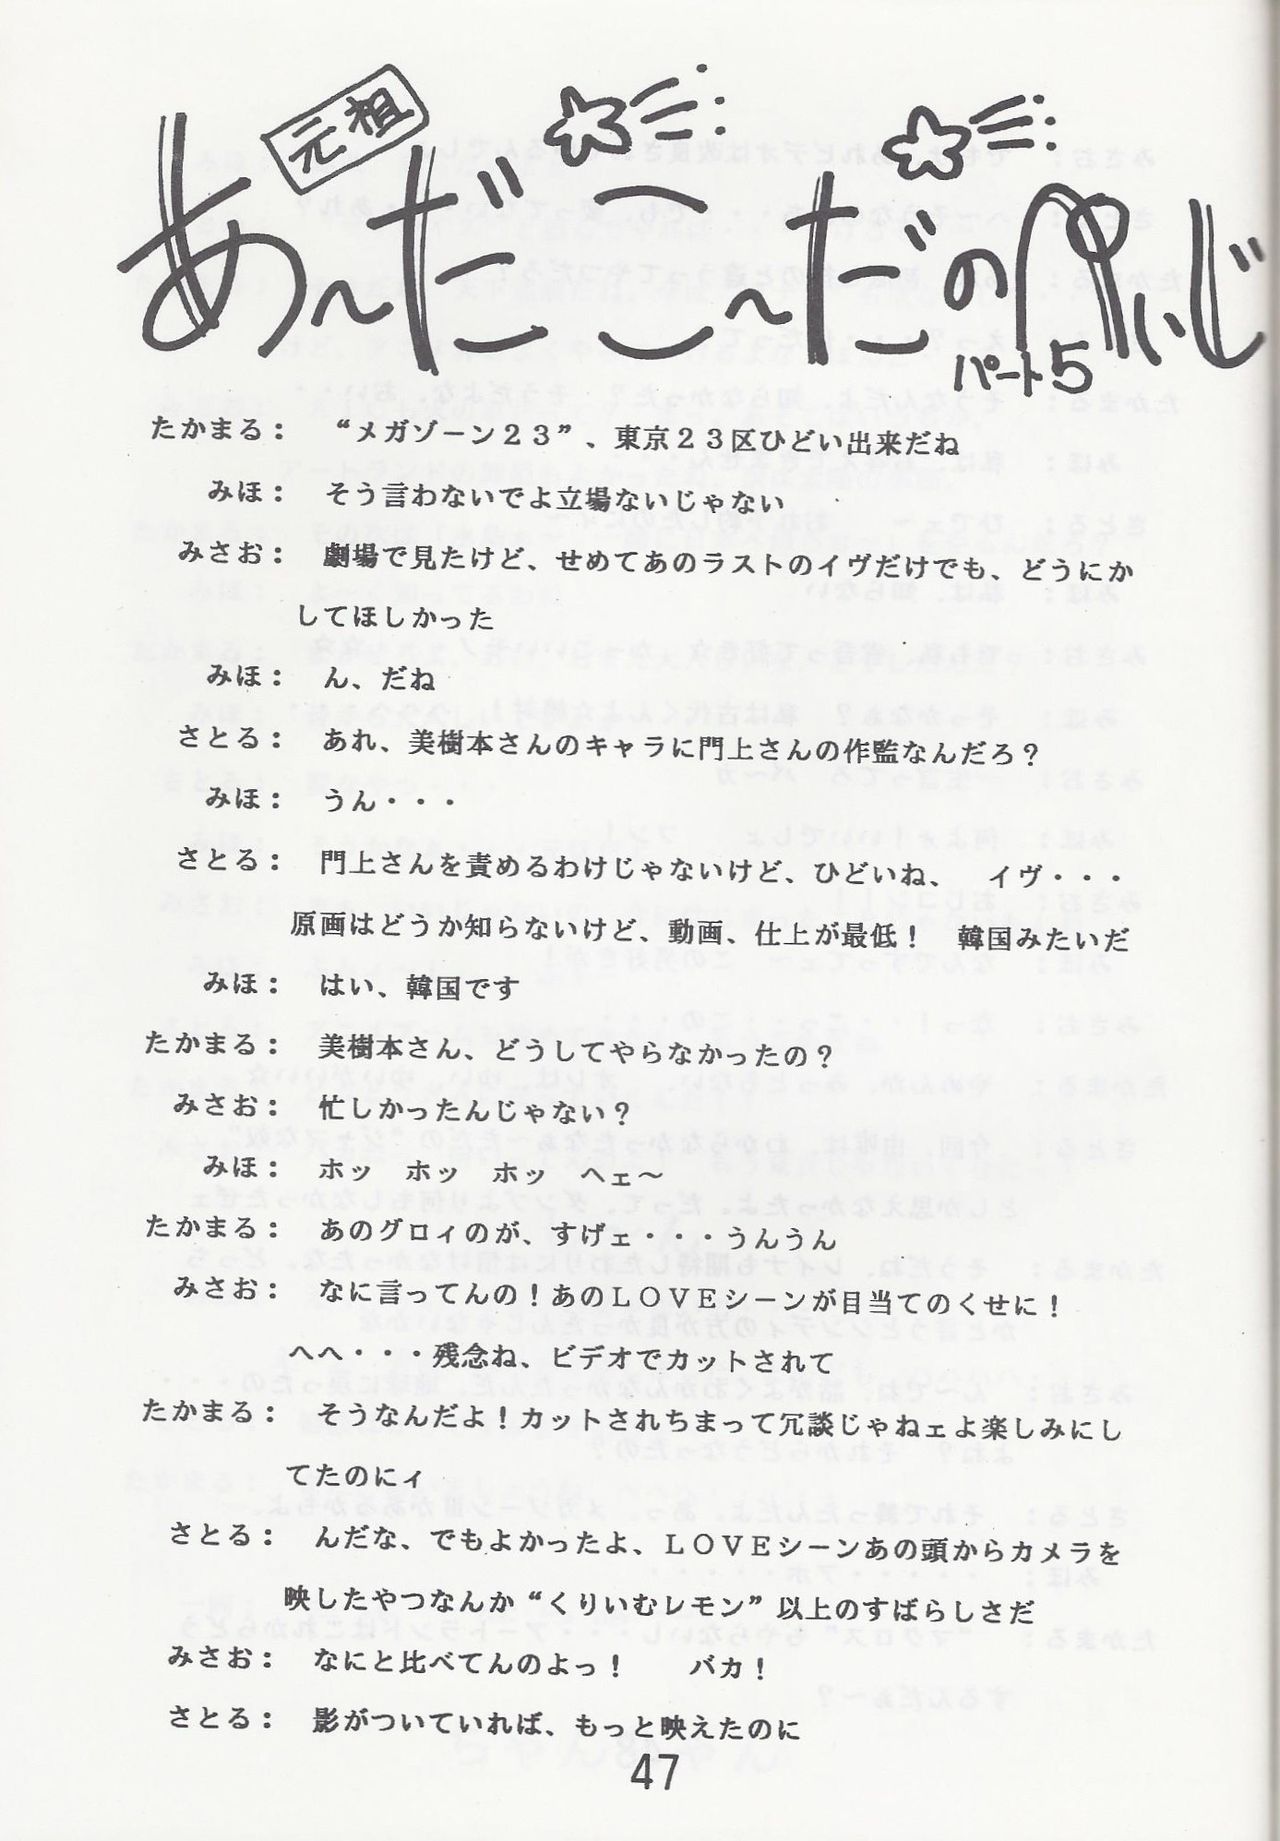 元祖
あ〜だこ〜だのぺいじ
パート5
たかまる：　“メガゾーン２３”、東京２３区ひどい出来だね
みほ：　そう言わないでよ立場ないじゃない
みさお：　劇場で見たけど、せめてあのラストのイヴだけでも、どうにか
してほしかった
みほ：　ん、だね
さとる：　あれ、美樹本さんのキャラに門上さんの作監なんだろ？
みほ：　うん・・・
さとる：　門上さんを責めるわけじゃないけど、ひどいね、　イヴ・・・
原画はどうか知らないけど、動画、仕上が最低！　韓国みたいだ
みほ：　はい、韓国です
たかまる：　美樹本さん、どうしてやらなかったの？
みさお：　忙しかったんじゃない？
みほ：　ホッ　ホッ　ホッ　ヘェ〜
たかまる：　あのグロィのが、すげェ・・・うんうん
みさお：　なに言ってんの！あのＬＯＶＥシーンが目当てのくせに！
へへ・・・残念ね、ビデオでカットされて
たかまる：　そうなんだよ！カットされちまって冗談じゃねェよ楽しみにし
てたのにィ
さとる：　んだな、でもよかったよ、ＬＯＶＥシーンあの頭からカメラを
映したやつなんか“くりいむレモン”以上のすばらしさだ
みさお：　なにと比べてんのよっ！　　バカ！
さとる：　影がついていれば、もっと映えたのに
47